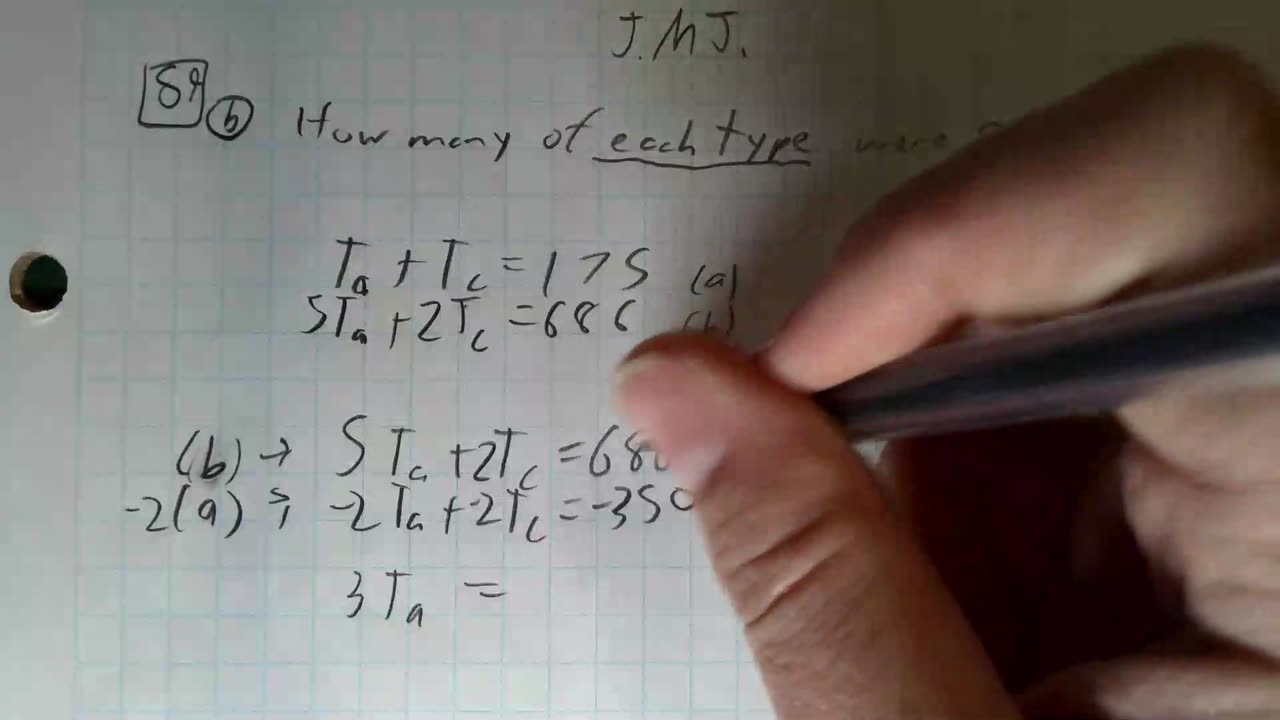 J.M.J.
59 b How many of each type were
Ta + Tc = 175 (a)
5Ta + 2Tc = 686 (b)
(b) → 5Ta + 2Tc = 68
-2(a) → -2Ta + -2Tc = -350
3Ta =